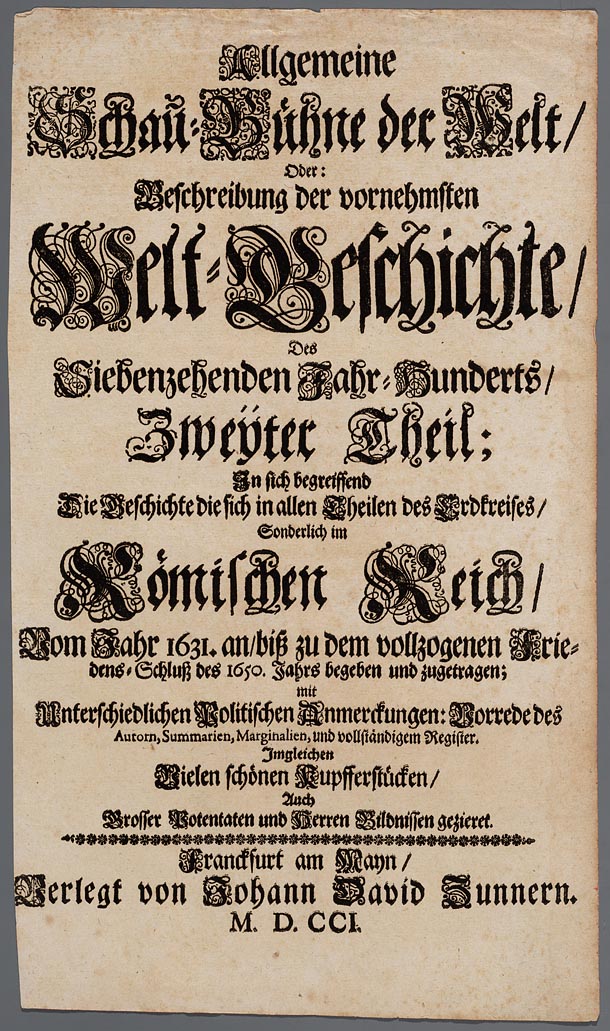 Allgemeine
Schaü-Bühne der Welt/
Oder:
Beschreibung der vornehmsten
Welt-Geschichte/
Des
Siebenzehenden Jahr-Hunderts/
Zweÿter Theil;
In sich begreiffend
Die Geschichte die sich in allen Theilen des Erdkreises/
Sonderlich im
Römischen Reich/
Vom Jahr 1631. an/biß zu dem vollzogenen Frie-
dens-Schluß des 1650. Jahrs begeben und zugetragen;
mit
Unterschiedlichen Politischen Anmerckungen: Vorrede des
Autorn, Summarien, Marginalien, und vollständigem Register.
Imgleichen
Vielen schönen Kupfferstücken/
Auch
Grosser Potentaten und Herren Bildnissen gezieret.
Franckfurt am Mayn/
Verlegt von Johann David Zunnern.
M. D. CCI.